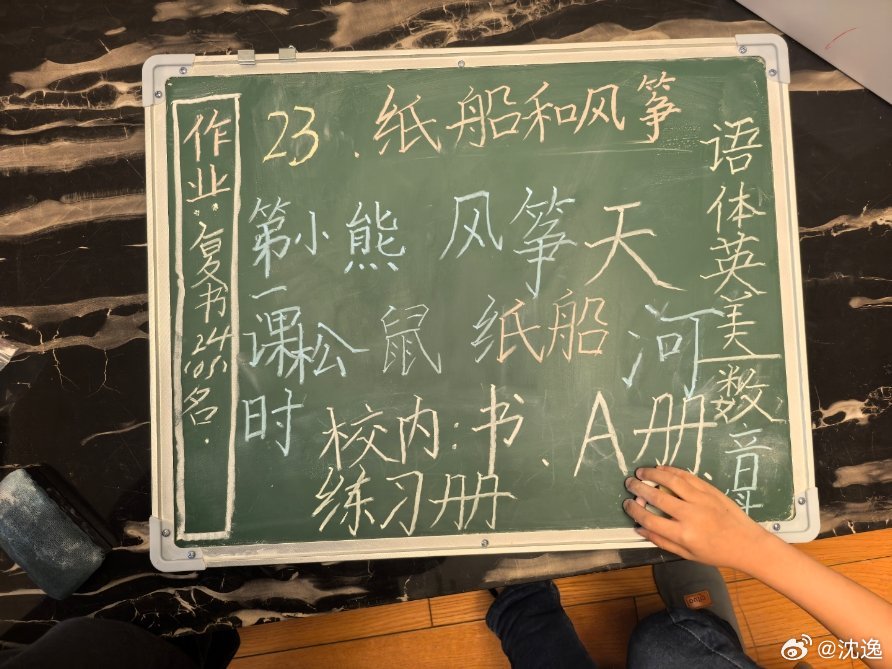 23.纸船和风筝
作业:复书24
签名.
第一课时
小熊 风筝 天
松鼠 纸船 河
校内:书、A册、
练习册
语体英美
数音
@沈逸